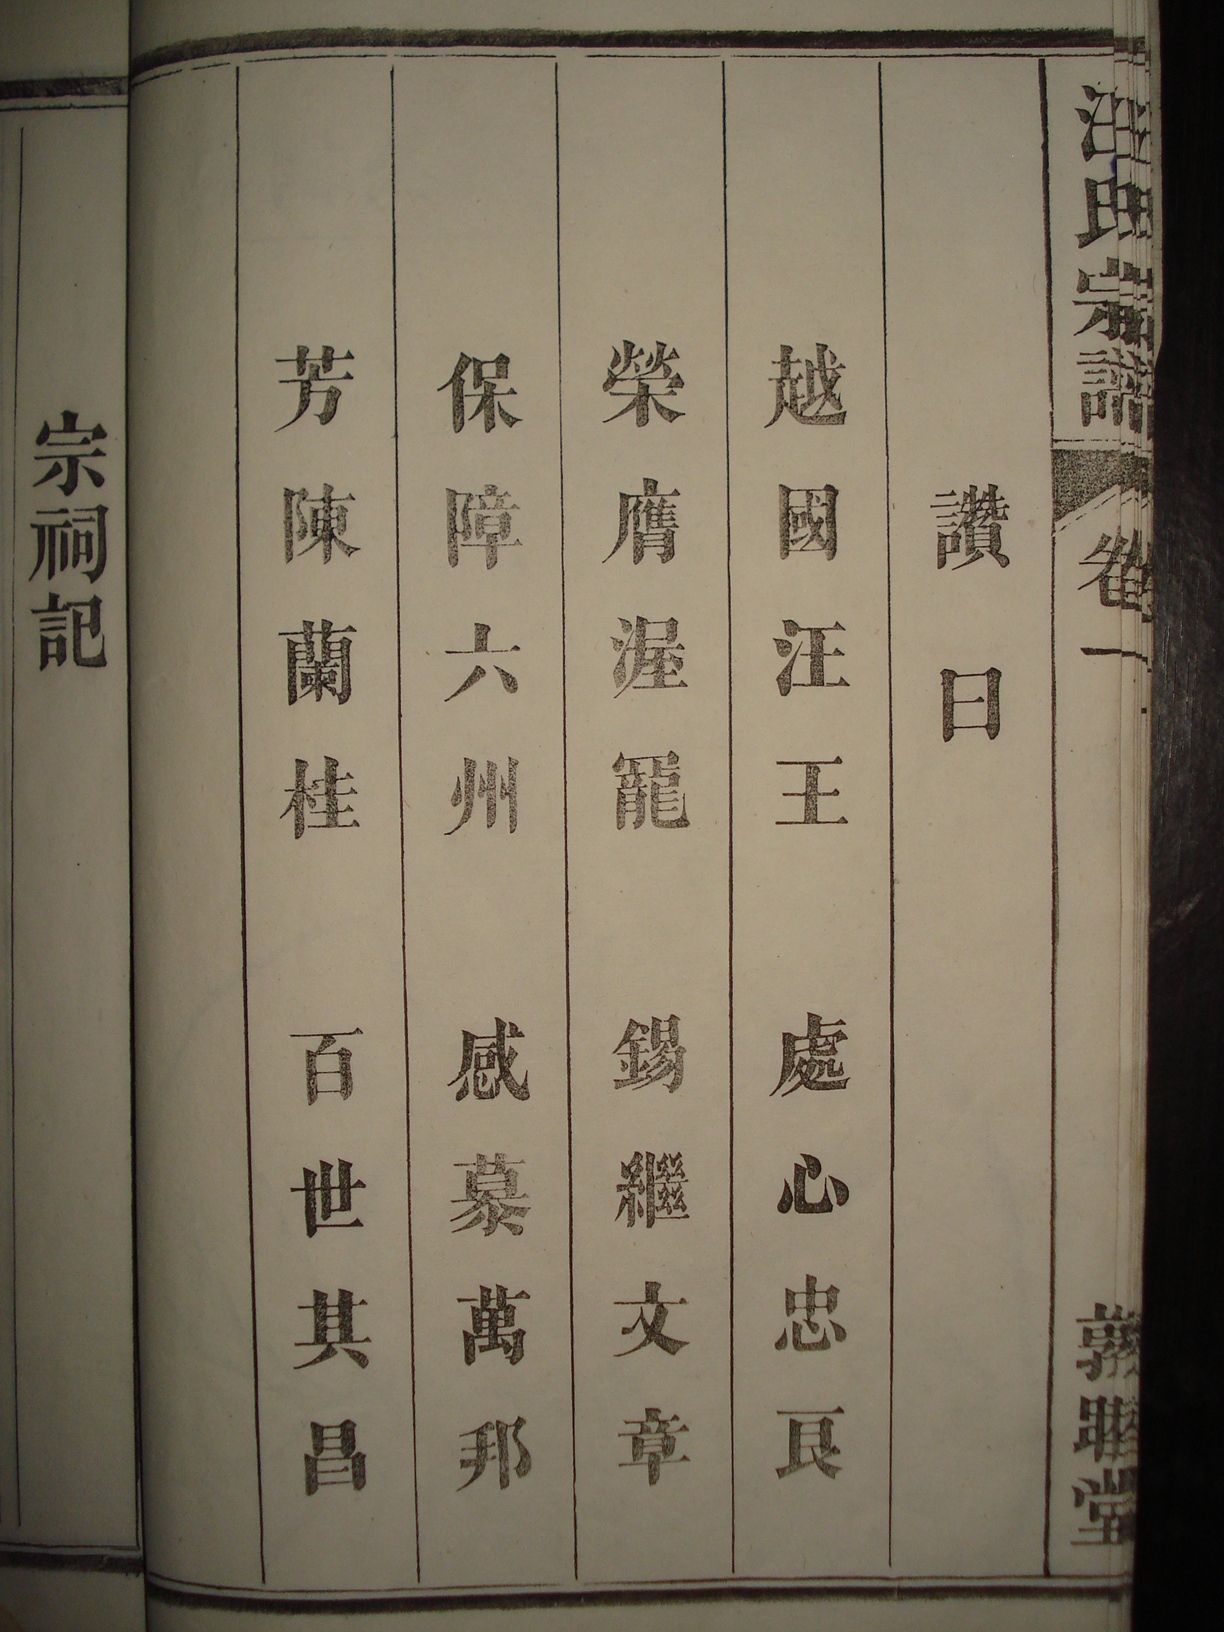 汪氏宗譜 卷一 敦睦堂
讚曰
越國汪王 處心忠良
榮膺渥寵 錫繼文章
保障六州 感慕萬邦
芳陳蘭桂 百世其昌
宗祠記